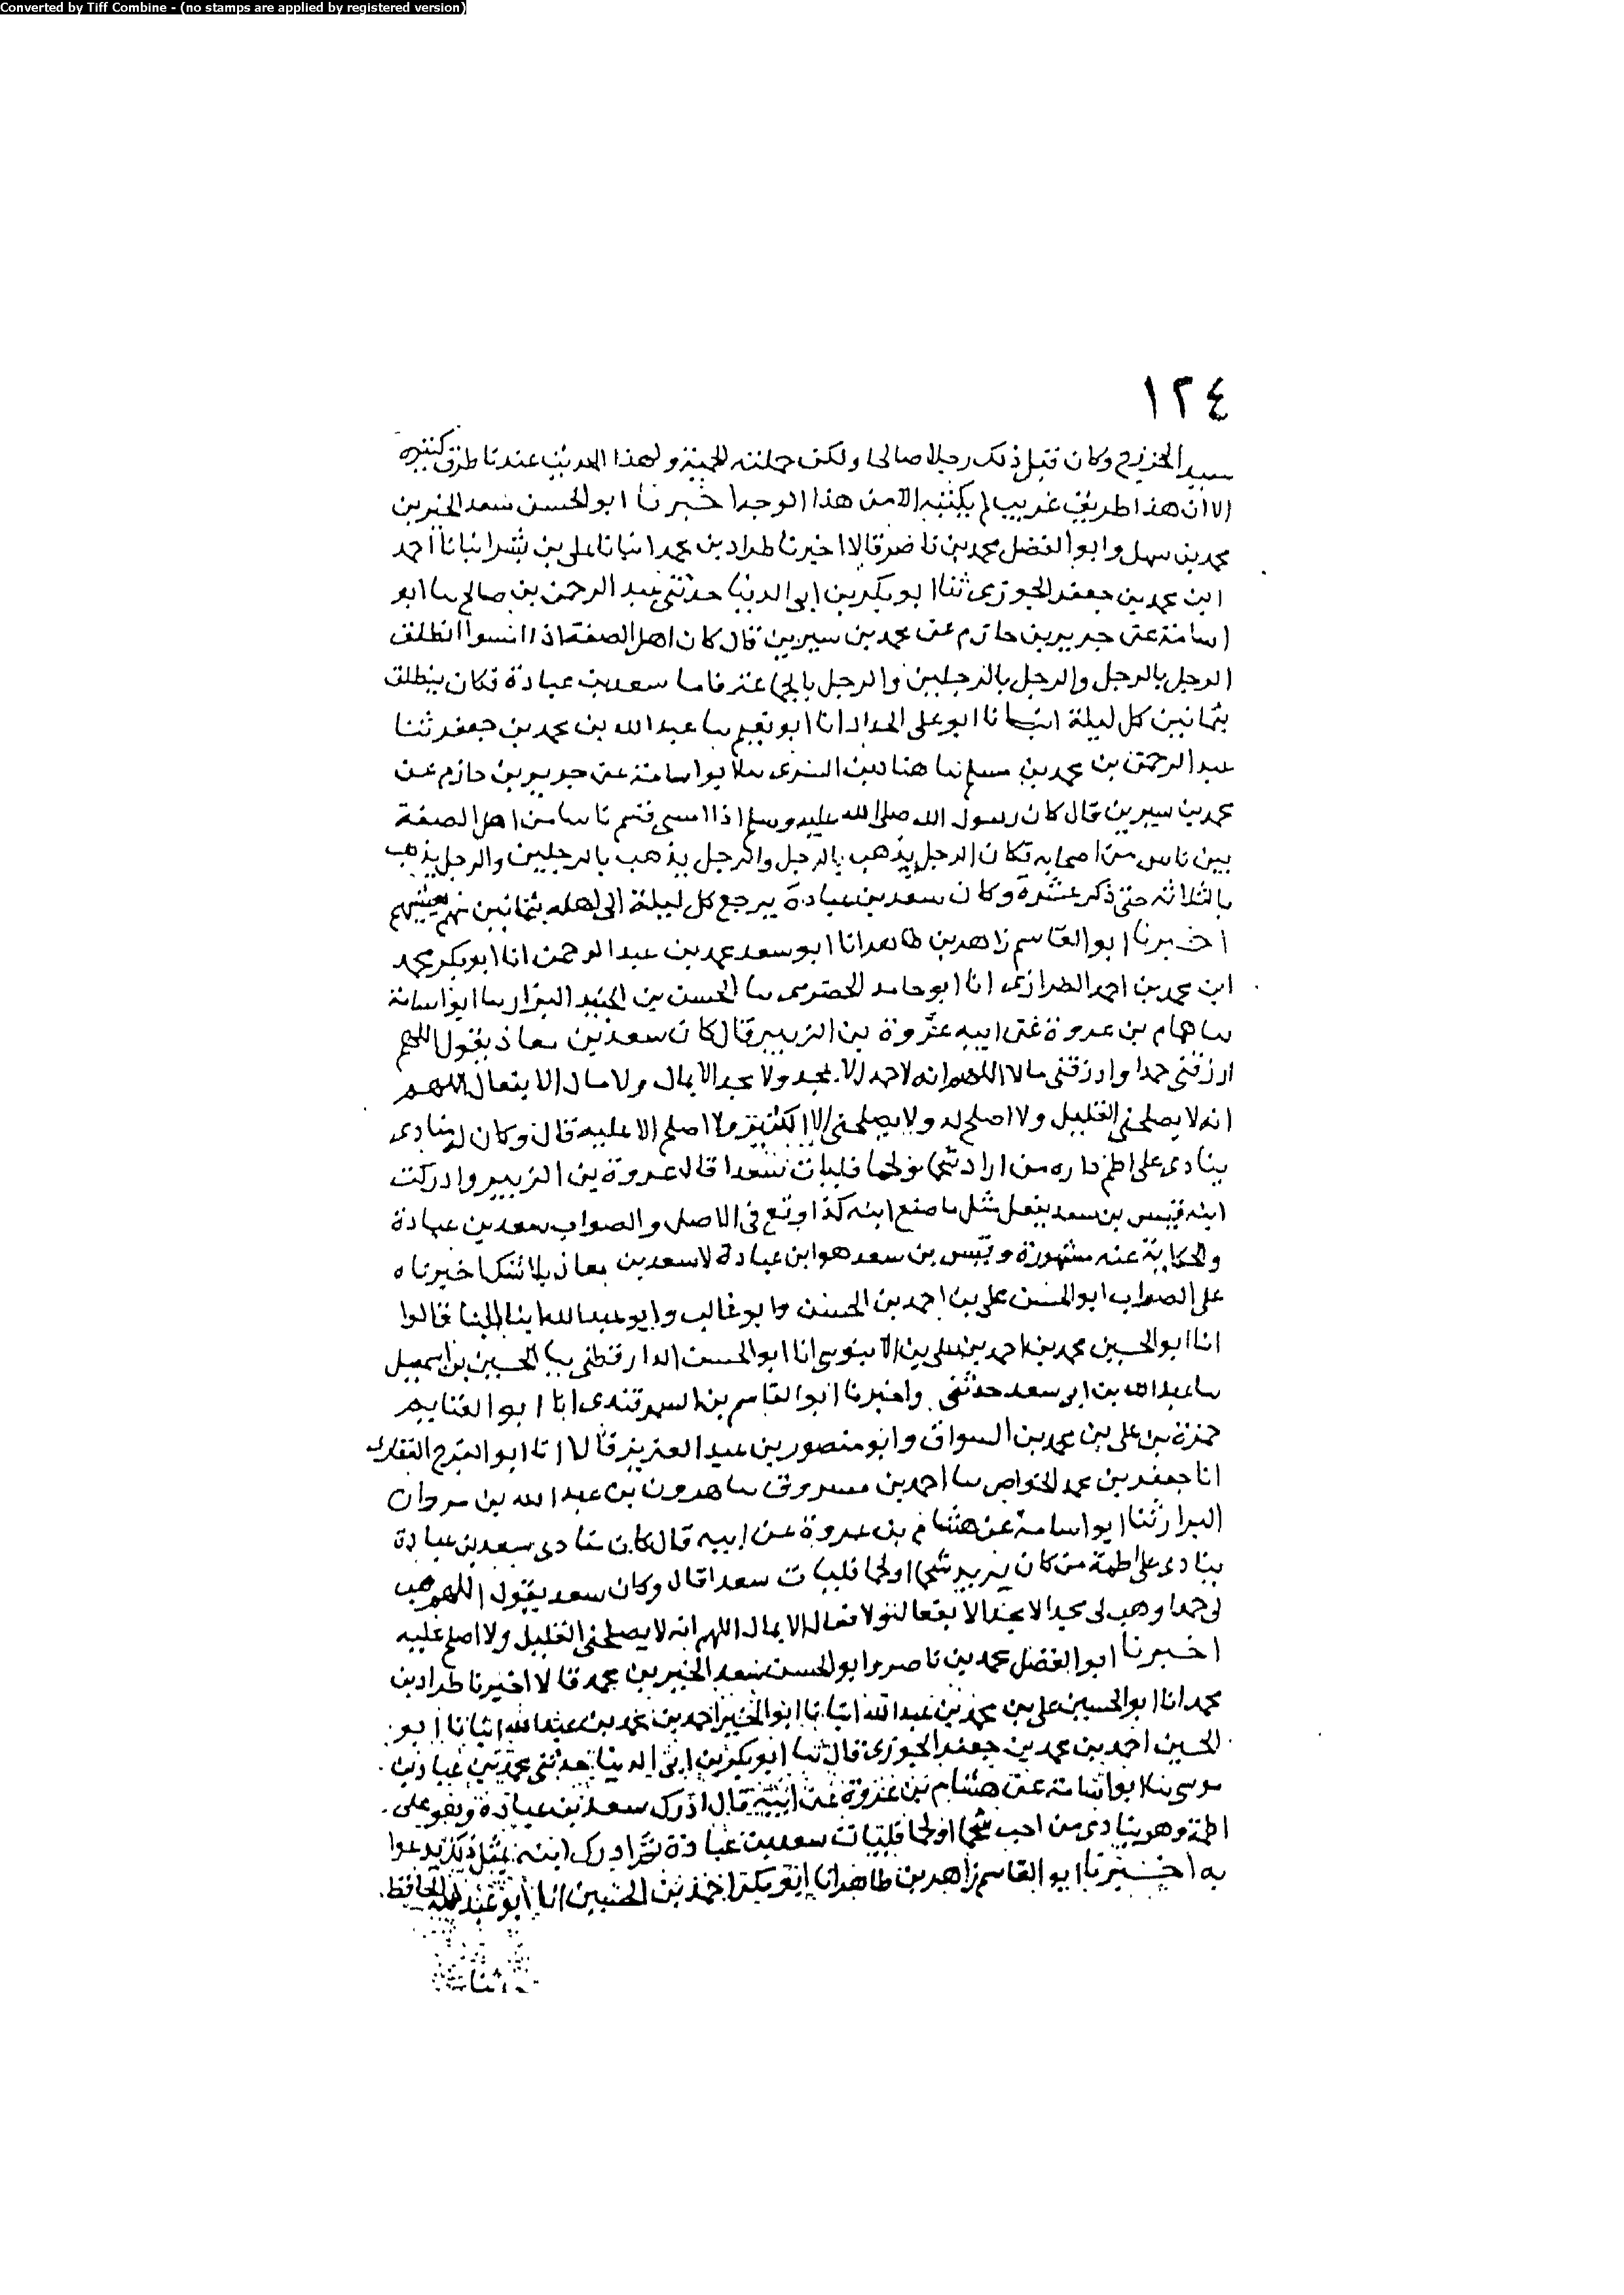 Converted by Tiff Combine - (no stamps are applied by registered version)
١٢٤
سيد الخزرج وكان قبل ذلك رجلا صالحا ولكن حملته الحمية ولهذا الحديث عندنا طرق كثيره
الا ان هذا طريق غريب لم يكتبه الا من هذا الوجه اخبرنا ابو الحسن سعد الخير بن
محمد بن سهل وابو الفضل محمد بن ناصر قالا اخبرنا طراد بن محمد انبانا على بن بشر انبانا احمد
ابن محمد بن جعفر الجوزى ثنا ابو بكر بن ابى الدنيا حدثنى عبد الرحمن بن صالح سا ابو
اسامة عن جرير بن حازم عن محمد بن سيرين قال كان اهل الصفة اذا امسوا انطلق
الرجل بالرجل والرجل بالرجلين والرجل بالجماعة فاما سعد بن عبادة فكان ينطلق
بثمانين كل ليلة انبانا ابو على الحداد انا ابو نعيم سا عبد الله بن محمد بن جعفر ثنا
عبد الرحمن بن محمد بن مسلم سا هناد بن السرى سا ابو اسامة عن جرير بن حازم عن
محمد بن سيرين قال كان رسول الله صلى الله عليه وسلم اذا امسى قسم ناسا من اهل الصفة
بين ناس من اصحابه فكان الرجل يذهب بالرجل والرجل يذهب بالرجلين والرجل يذهب
بالثلاثة حتى ذكر عشرة وكان سعد بن عبادة يرجع كل ليلة الى اهله بثمانين منهم يعشيهم
اخبرنا ابو القاسم زاهر بن طاهر انا ابو سعد محمد بن عبد الرحمن انا ابو بكر محمد
ابن محمد بن احمد الطرازى انا ابو حامد الحضرمى سا الحسن بن الجنيد البزار سا ابو اسامة
سا هشام بن عروة عن ابيه عروة بن الزبير قال كان سعد بن معاذ يقول اللهم
ارزقنى حمدا وارزقنى مالا اللهم انه لا حمد الا بمجد ولا مجد الا بمال ولا مال الا بفعال اللهم
انه لا يصلحنى القليل ولا اصلح له ولا يصلحنى الا الكثير ولا اصلح الا عليه قال وكان له منادى
ينادى على اطم داره من اراد شحما ولحما فليات سعدا قال عروة بن الزبير وادركت
ابنه قيس بن سعد يفعل مثل ما صنع ابنه كذا وقع فى الاصل والصواب سعد بن عبادة
والحكاية عنه مشهورة وقيس بن سعد هو ابن عبادة لا سعد بن معاذ بلا شك اخبرناه
على الصواب ابو الحسن على بن احمد بن الحسن وابو غالب وابو عبد الله ابنا البنا قالوا
انا ابو الحسين محمد بن احمد بن على بن الابنوسى انا ابو الحسن الدارقطنى سا الحسين بن اسمعيل
سا عبد الله بن ابى سعد حدثنى واخبرنا ابو القاسم بن السمرقندى انا ابو الغنايم
حمزة بن على بن محمد بن السواق وابو منصور بن عبد العزيز قالا انا ابو الفرج
انا جعفر بن محمد الخواص سا احمد بن مسروق سا هرون بن عبد الله بن مروان
البزار ثنا ابو اسامة عن هشام بن عروة عن ابيه قال كان منادى سعد بن عبادة
ينادى على اطمة من كان يريد شحما ولحما فليات سعدا قال وكان سعد يقول اللهم هب
لى حمدا وهب لى مجدا لا مجد الا بفعال ولا فعال الا بمال اللهم انه لا يصلحنى القليل ولا اصلح عليه
اخبرنا ابو الفضل محمد بن ناصر وابو الحسن سعد الخير بن محمد قالا اخبرنا طراد بن
محمد انا ابو الحسين على بن محمد بن عبد الله انبانا ابو الخير احمد بن محمد بن عبد الله انبانا ابو
الحسين احمد بن محمد بن جعفر الجوزى قال ثنا ابو بكر بن ابى الدنيا حدثنى محمد بن عباد بن
موسى سا ابو اسامة عن هشام بن عروة عن ابيه قال ادرك سعد بن عبادة وهو على
اطمة وهو ينادى من احب شحما او لحما فليات سعد بن عبادة ثم ادرك ابنه بمثل ذلك يدعوا
به اخبرنا ابو القاسم زاهر بن طاهر انا ابو بكر احمد بن الحسين انا ابو عبد الله الحافظ
حدثنا